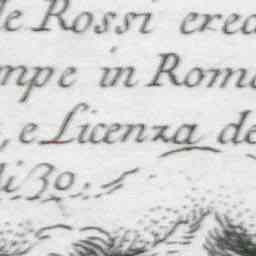 le Rossi ered
mpe in Roma
, e Licenza de
li 30.